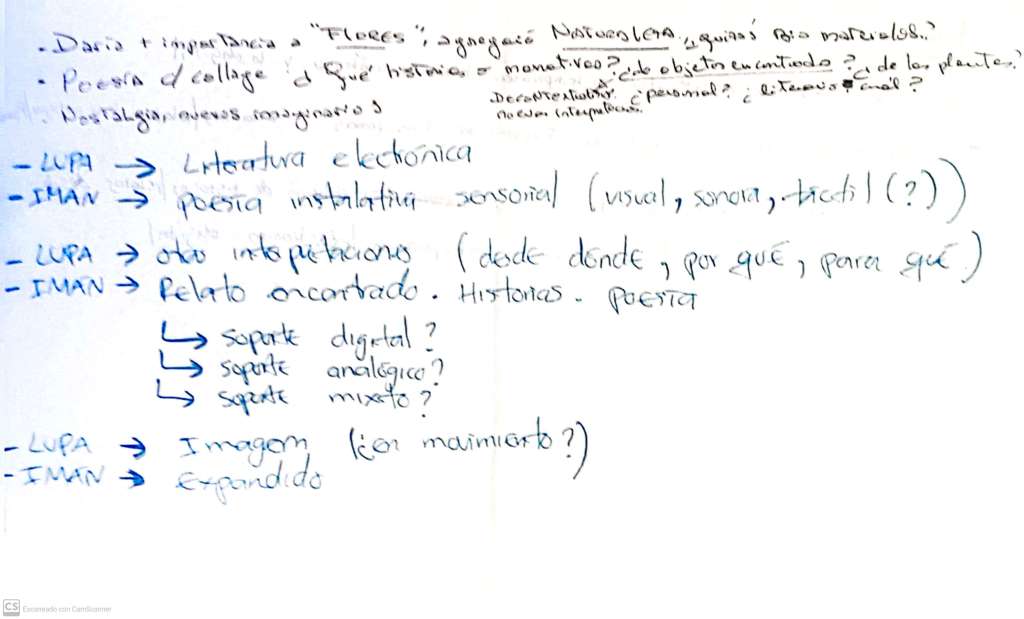 • Daria + importancia a "FLORES", agregaió NATURALEZA, ¿quizás Bio materiales..?
• Poesía d/ collage ¿Qué historias o narrativas? ¿de objetos encontrado? ¿de las plantas?
Decontextualizar. ¿personal? ¿literario cuál?
nuevas interpretación.
• Nostalgia, nuevos imaginarios
- LUPA → Literatura electrónica
- IMAN → poesía instalativa sensorial (visual, sonora, táctil (?))
- LUPA → otro interpretaciones (desde dónde, por qué, para qué)
- IMAN → Relato encontrado. Historias. poesía
↳ soporte digital?
↳ soporte analógico?
↳ soporte mixto?
- LUPA → Imagen (¿en movimiento?)
- IMAN → Expandido
CS Escaneado con CamScanner